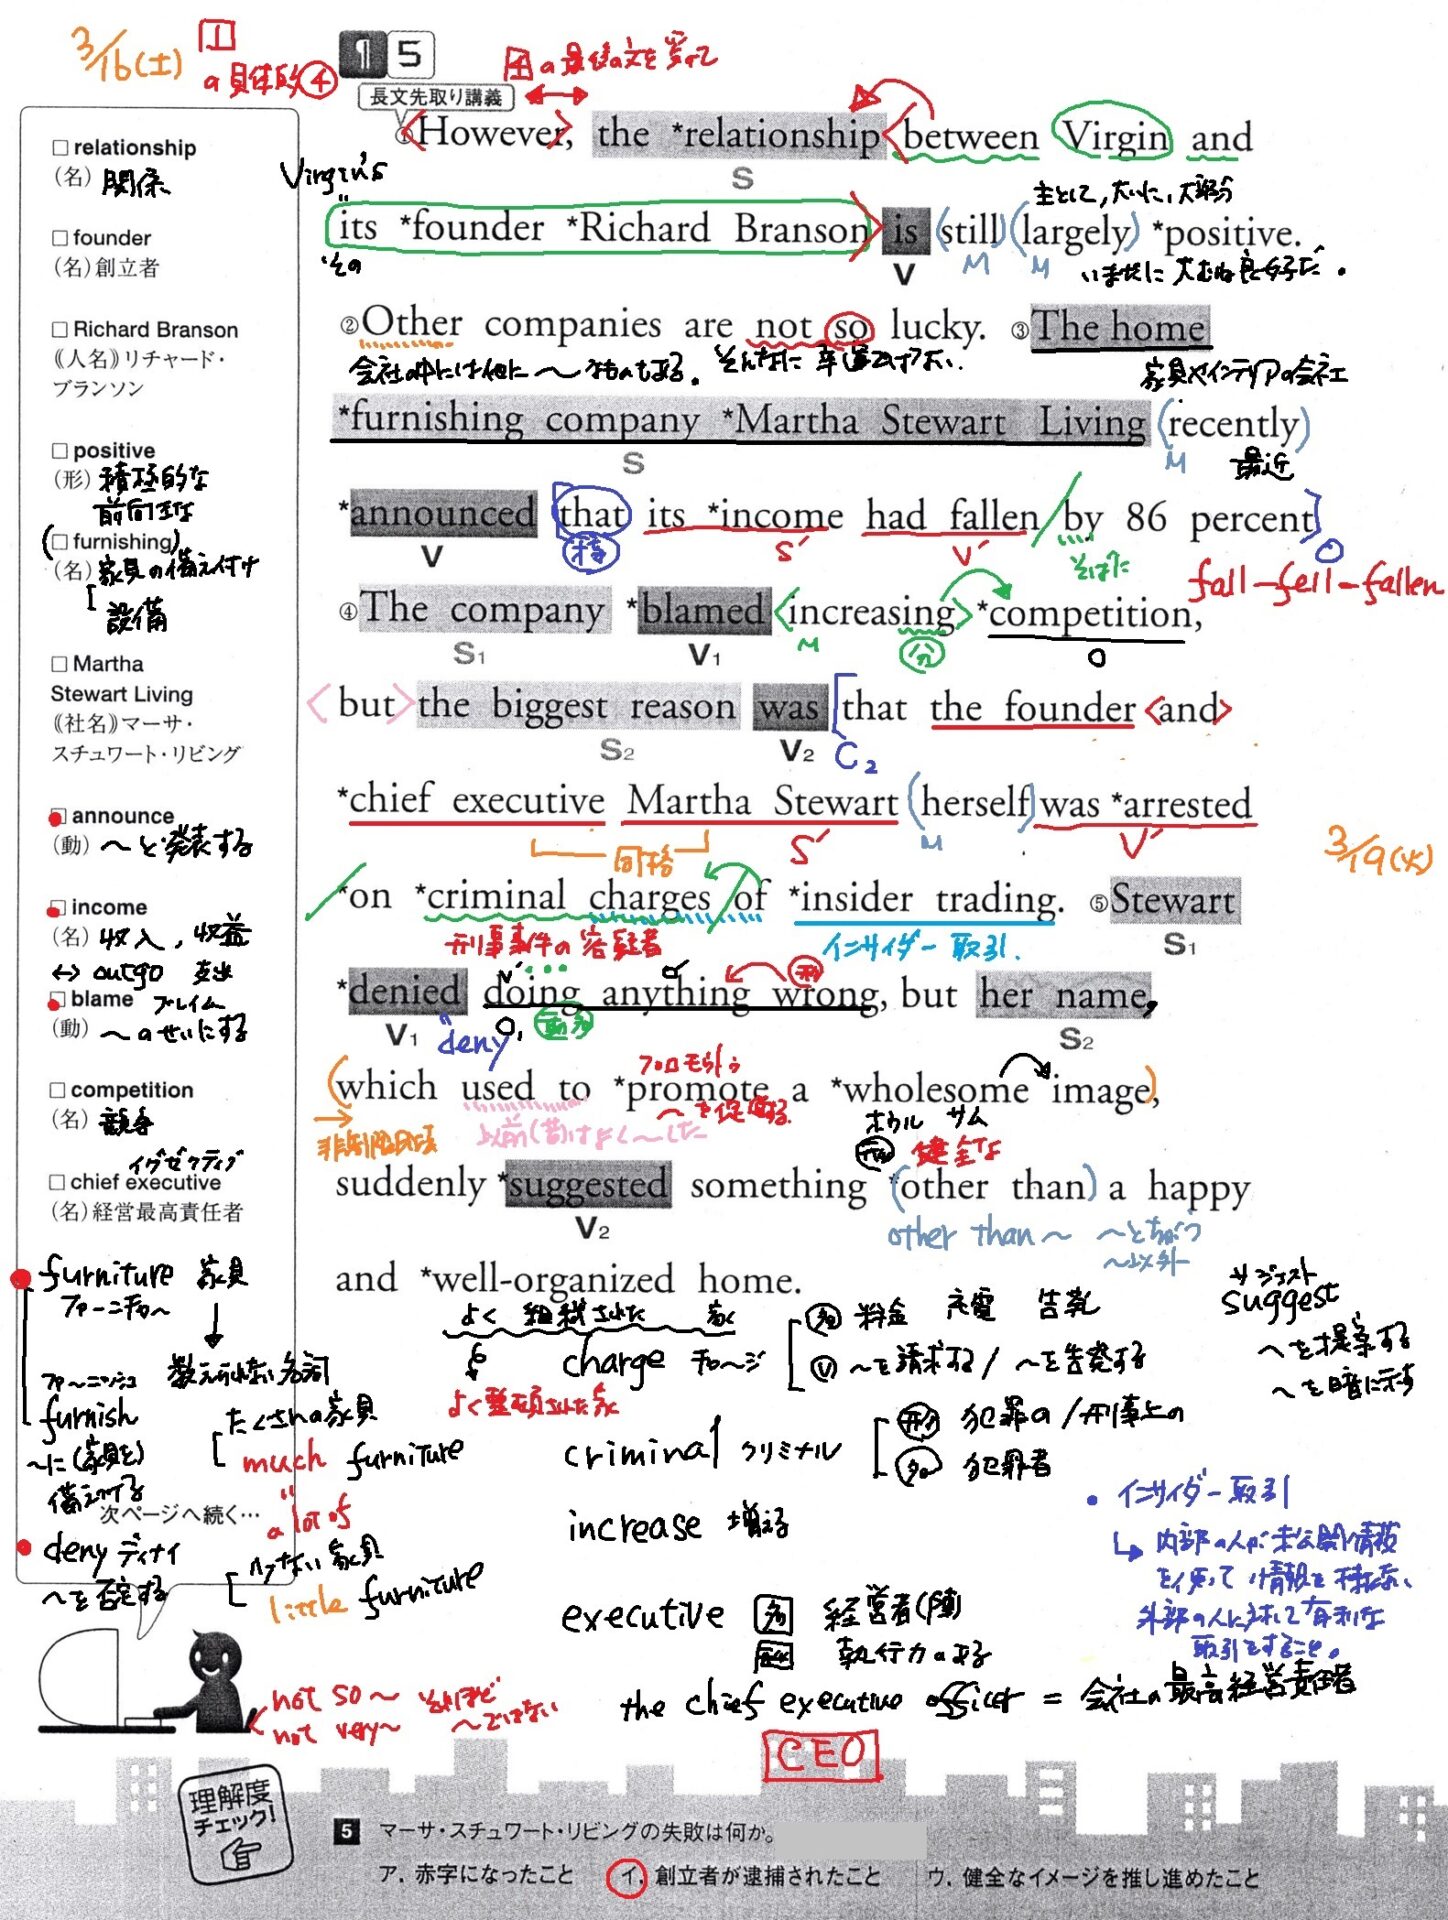 3/16(土)
1
の具体的④
¶ 5
4の最後の文を受けて
長文先取り講義
①However, the *relationship between Virgin and
S
Virgin's
主として, 大いに, 大部分
its *founder *Richard Branson is (still) (largely) *positive.
その
V
M
M
いまだに 大むね良好だ。
②Other companies are not so lucky. ③The home
会社の中には他に〜なものもある。
そんなに幸運ではない.
家具やインテリアの会社
*furnishing company *Martha Stewart Living (recently)
S
M
最近
*announced that its *income had fallen / by 86 percent
V
接
S'
V'
O
fall-fell-fallen
④The company *blamed <increasing> *competition,
S1
V1
M
分
O
<but> the biggest reason was that the founder <and>
S2
V2
C2
*chief executive Martha Stewart (herself) was *arrested
同格
S'
M
V'
3/19(火)
*on *criminal charges / of *insider trading. ⑤Stewart
刑事事件の容疑者
インサイダー取引.
S1
*denied doing anything wrong, but her name,
V1
deny
O
動名
形
S2
(which used to *promote a *wholesome image),
非制限用法
以前(昔)はよく〜した
プロモウトゥ
〜を促進する
ホウルサム
形 健全な
suddenly *suggested something *(other than) a happy
V2
other than〜 〜とちがう
〜以外
and *well-organized home.
よく 組織された 家
よく整頓された家
charge チャージ
名 料金 充電 告訴
V 〜を請求する/〜を告発する
サジェスト
suggest
〜を提案する
〜を暗に示す
criminal クリミナル
形 犯罪の/刑事上の
名 犯罪者
increase 増える
・インサイダー取引
↳内部の人が未公開情報
を使って情報を持たない
外部の人に対して有利な
取引をすること。
executive 名 経営者(陣)
形 執行力のある
the chief executive officer = 会社の最高経営責任者
CEO
□ relationship
(名) 関係
□ founder
(名) 創立者
□ Richard Branson
《人名》リチャード・
ブランソン
□ positive
(形) 積極的な
前向きな
(□ furnishing)
(名) 家具の備え付け
設備
□ Martha
Stewart Living
《社名》マーサ・
スチュワート・リビング
□ announce
(動) 〜と発表する
□ income
(名) 収入, 収益
↔ outgo 支出
□ blame ブレイム
(動) 〜のせいにする
□ competition
(名) 競争
イグゼクティブ
□ chief executive
(名) 経営最高責任者
furniture 家具
ファーニチャー
数えられない名詞
ファーニッシュ
furnish
〜に(家具を)
備えつける
たくさんの家具
much furniture
a lot of
次ページへ続く…
deny ディナイ
〜を否定する
少ない家具
little furniture
not so〜 それほど
not very〜 〜ではない
理解度
チェック!
5 マーサ・スチュワート・リビングの失敗は何か。
ア. 赤字になったこと イ. 創立者が逮捕されたこと ウ. 健全なイメージを推し進めたこと